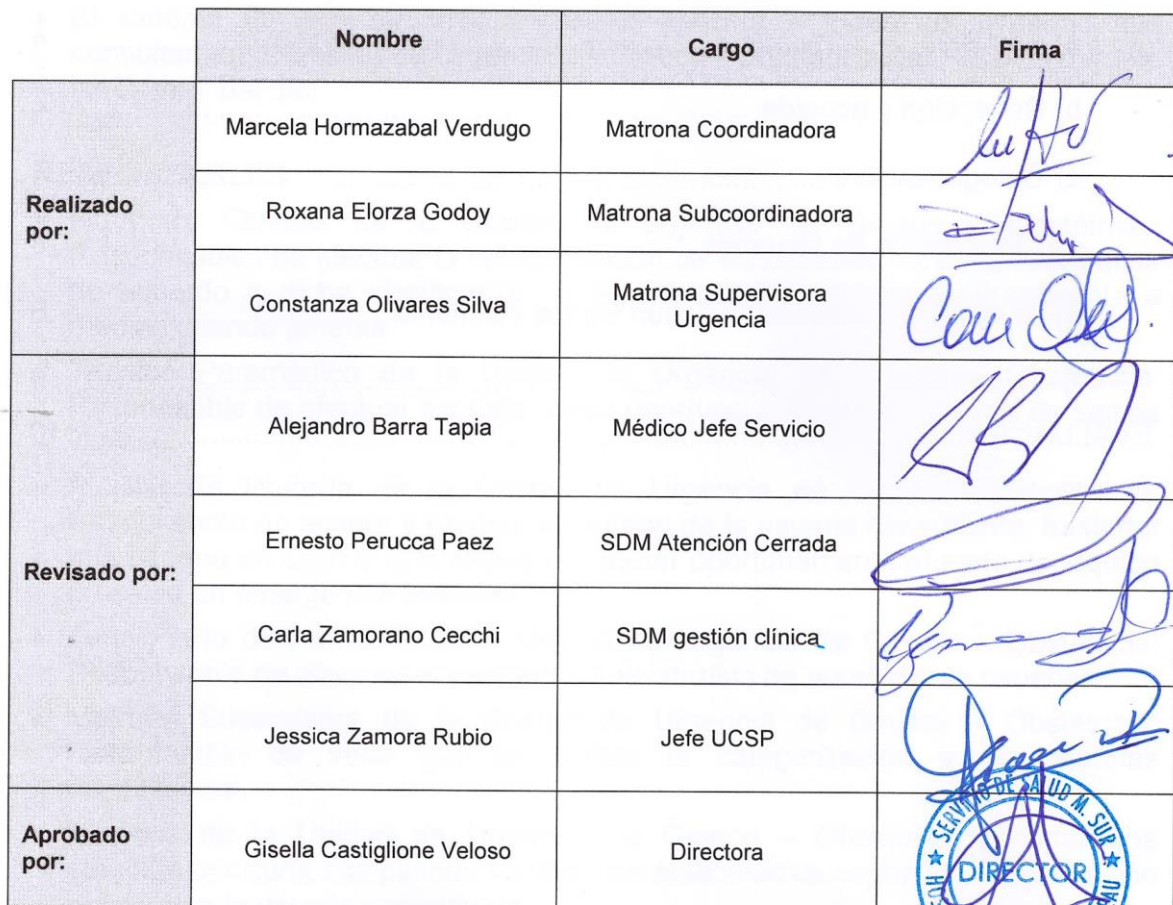 Nombre Cargo Firma
Realizado por:
Marcela Hormazabal Verdugo Matrona Coordinadora
Roxana Elorza Godoy Matrona Subcoordinadora
Constanza Olivares Silva Matrona Supervisora Urgencia
Revisado por:
Alejandro Barra Tapia Médico Jefe Servicio
Ernesto Perucca Paez SDM Atención Cerrada
Carla Zamorano Cecchi SDM gestión clínica
Jessica Zamora Rubio Jefe UCSP
Aprobado por:
Gisella Castiglione Veloso Directora
SERVICIO DE SALUD M. SUR
DIRECTOR